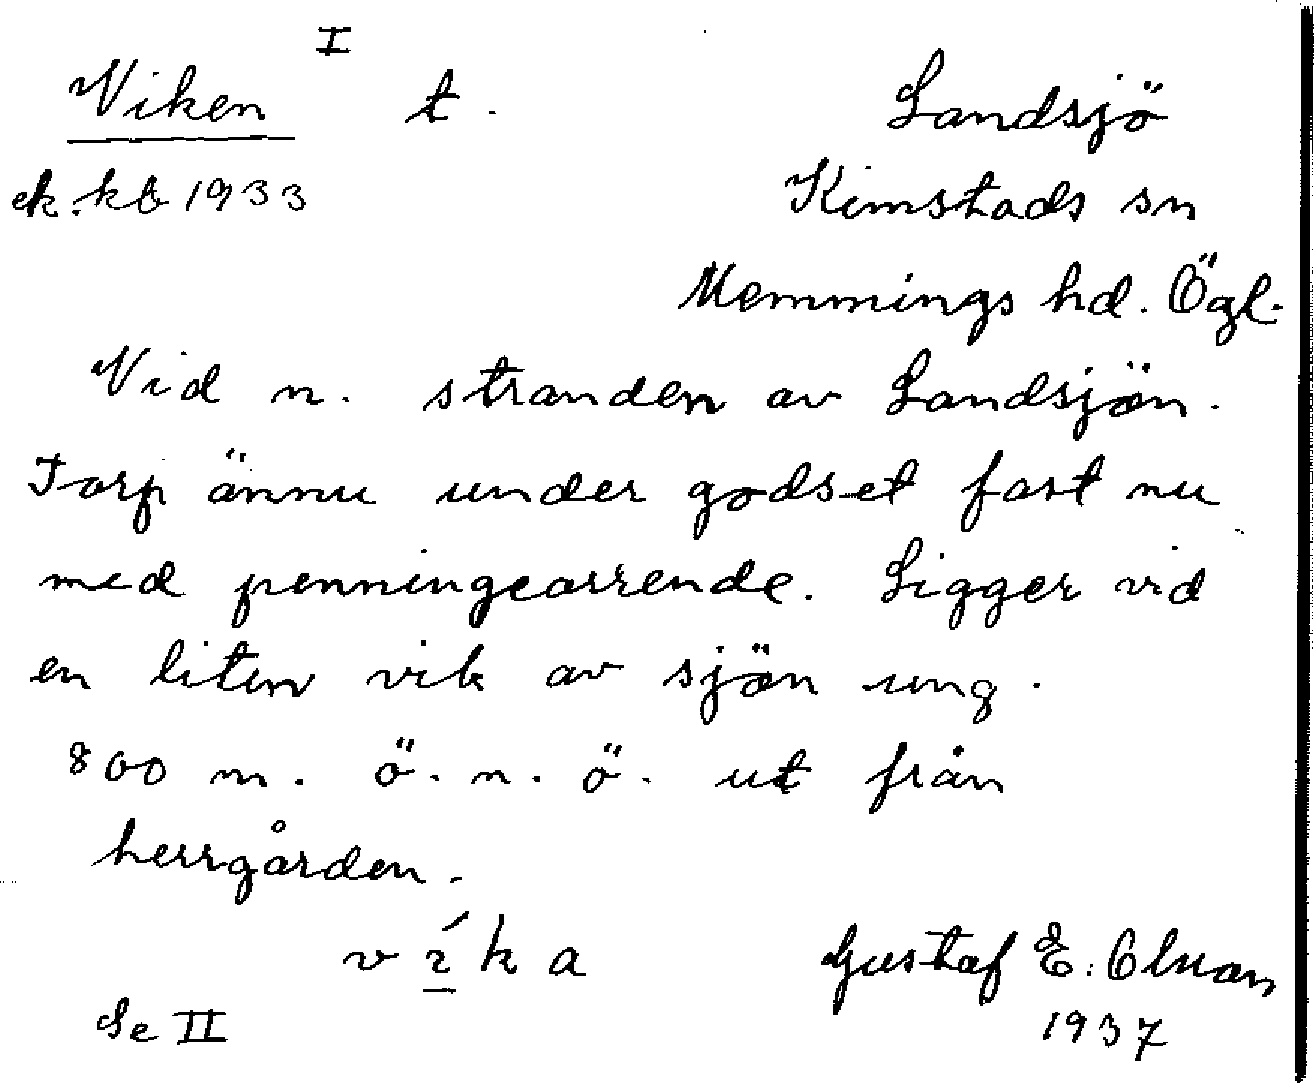 I
Viken t. Landsjö
ek. kb 1933 Kimstads sn
Memmings hd. Ögl.
Vid n. stranden av Landsjön.
Torp ännu under godset fast nu
med penningearrende. Ligger vid
en liten vik av sjön ung.
800 m. ö. n. ö. ut från
herrgården.
víka Gustaf E.
Se II 1937